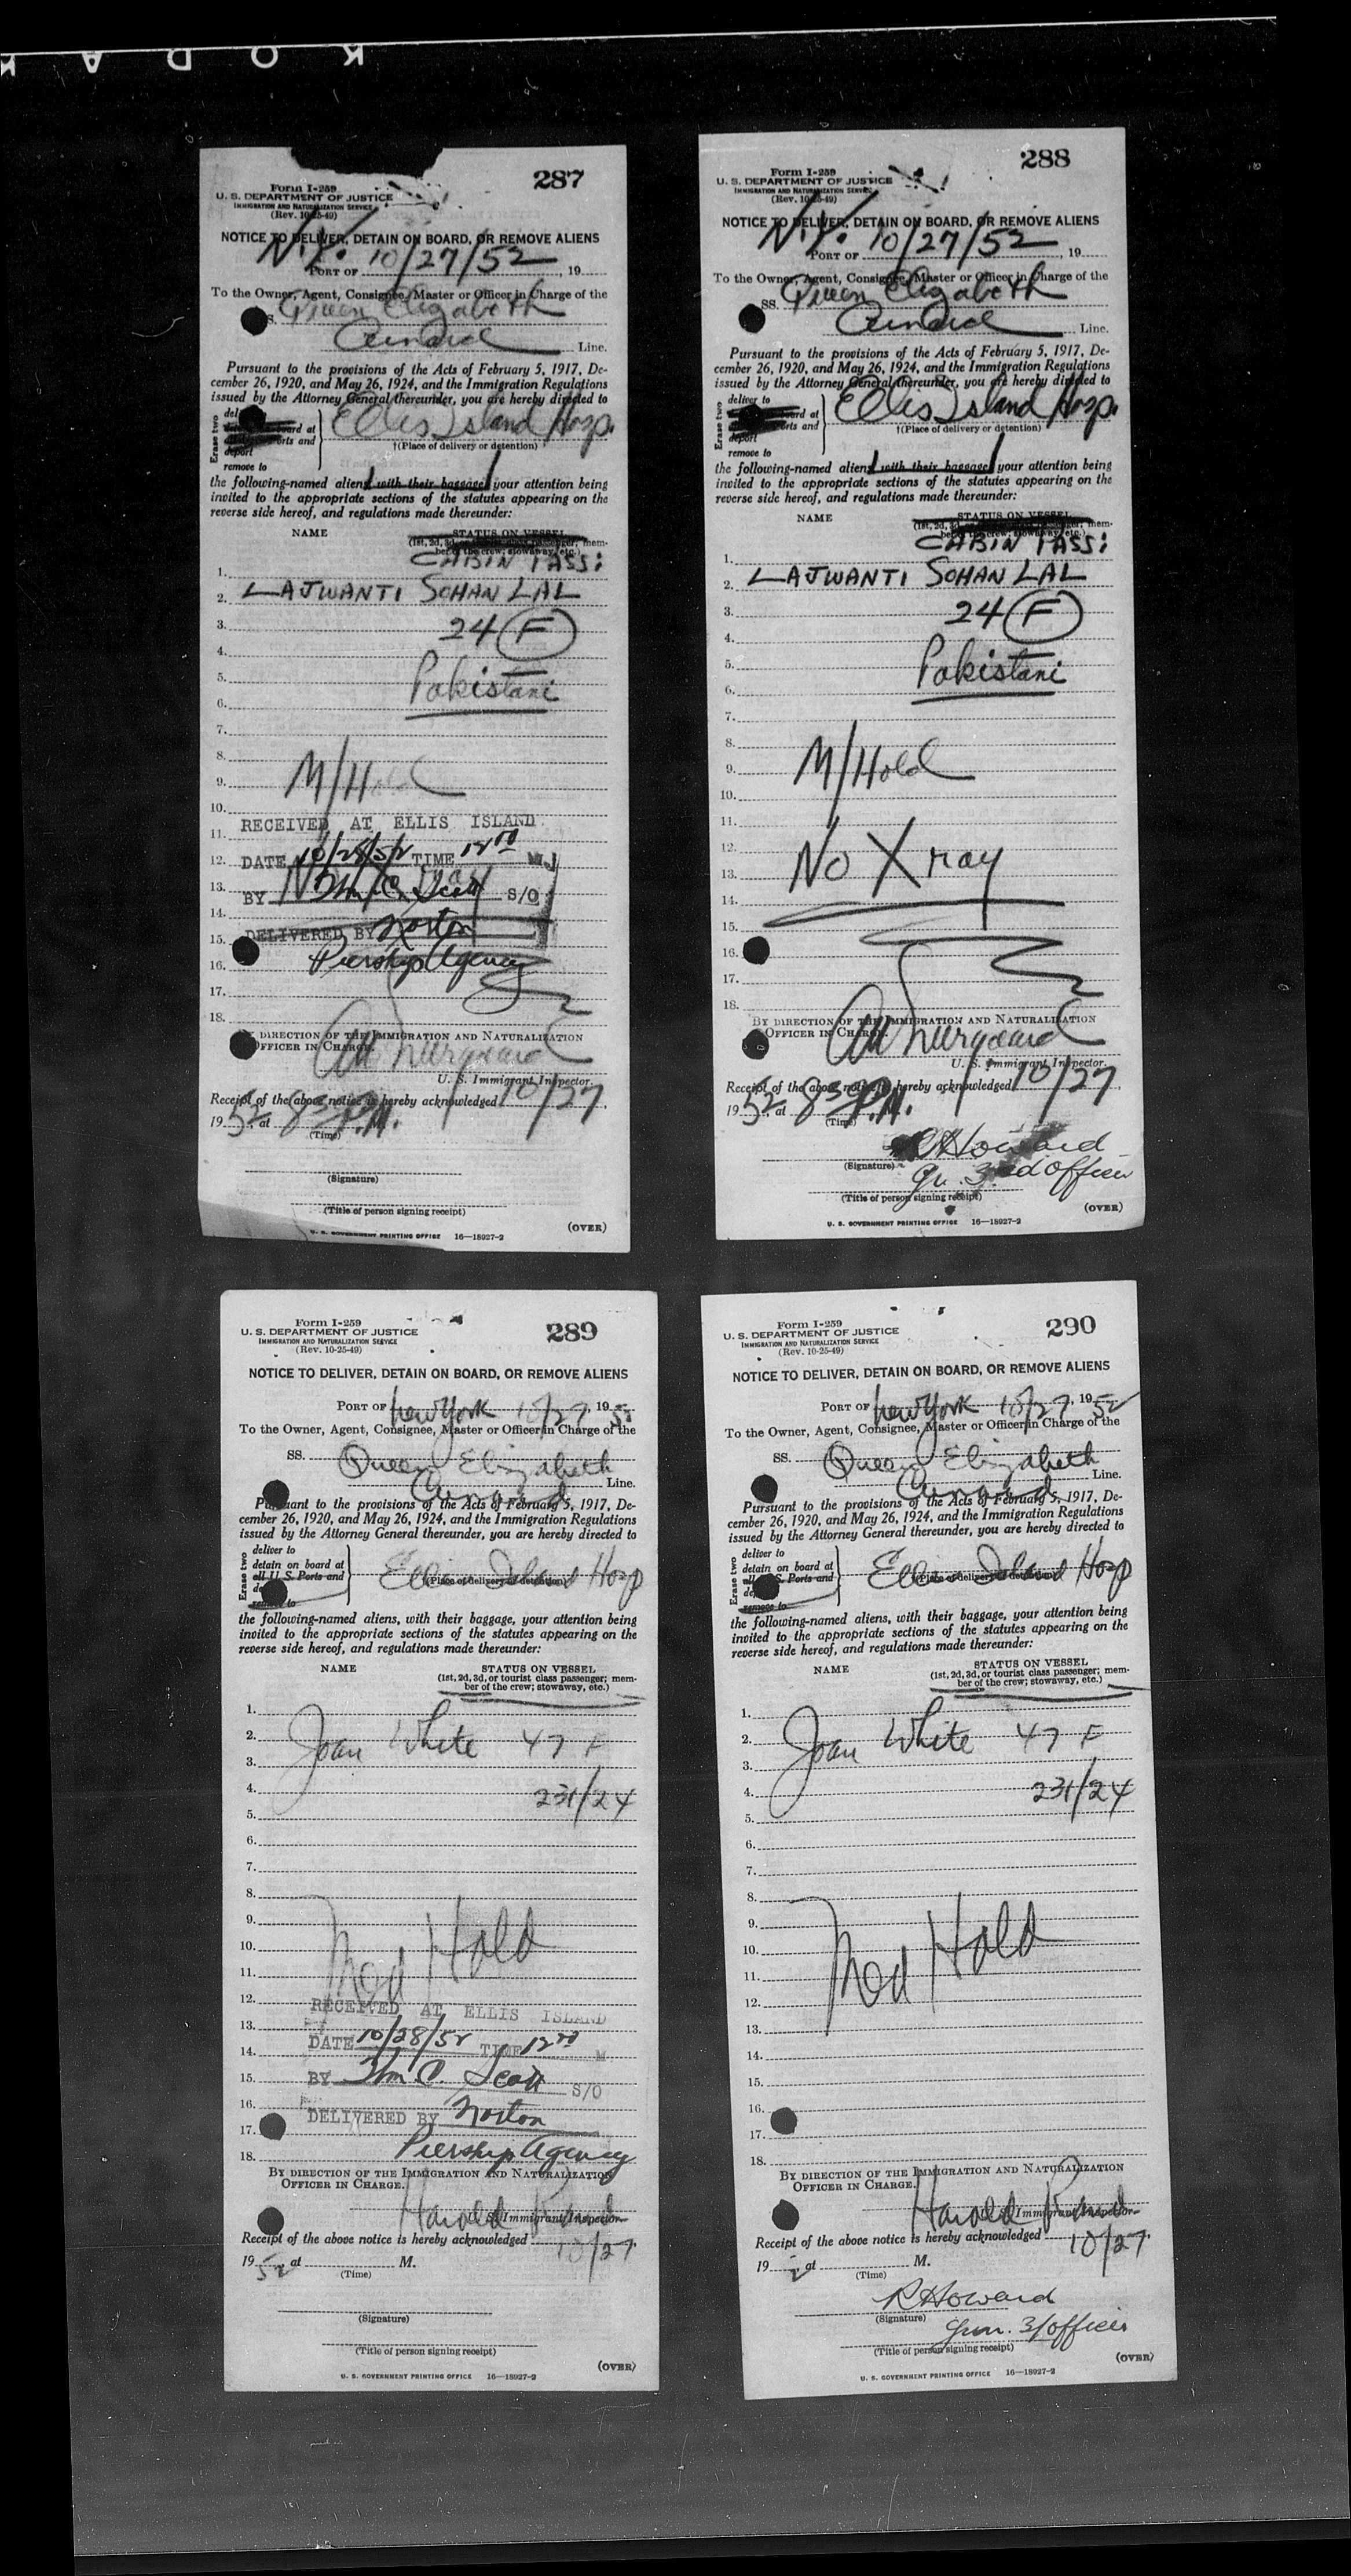 KODAK
287
Form I-259
U. S. DEPARTMENT OF JUSTICE
IMMIGRATION AND NATURALIZATION SERVICE
(Rev. 10-25-49)
NOTICE TO DELIVER, DETAIN ON BOARD, OR REMOVE ALIENS
N.Y. 10/27/52
PORT OF , 19
To the Owner, Agent, Consignee, Master or Officer in Charge of the
SS. Queen Elizabeth
Cunard Line.
Pursuant to the provisions of the Acts of February 5, 1917, De-
cember 26, 1920, and May 26, 1924, and the Immigration Regulations
issued by the Attorney General thereunder, you are hereby directed to
Erase two
Ellis Island Hosp.
†(Place of delivery or detention)
remove to
the following-named aliens with their baggage your attention being
invited to the appropriate sections of the statutes appearing on the
reverse side hereof, and regulations made thereunder:
NAME STATUS ON VESSEL
CABIN PASS:
1.
2. LAJWANTI SOHAN LAL
3. 24 (F)
4.
5. Pakistani
6.
7.
8.
9. M/Hold
10.
RECEIVED AT ELLIS ISLAND
11.
12. DATE 10/28/52 TIME 12 00 M
13. BY Wm. C. Scott S/O
14.
15. DELIVERED BY Norton
16. Piership Agency
17.
18.
BY DIRECTION OF THE IMMIGRATION AND NATURALIZATION
OFFICER IN CHARGE.
U. S. Immigrant Inspector.
Receipt of the above notice is hereby acknowledged 10/27,
1952, at 8 30 P.M.
(Time)
(Signature)
(Title of person signing receipt)
(OVER)
U. S. GOVERNMENT PRINTING OFFICE 16—18927-2
288
Form I-259
U. S. DEPARTMENT OF JUSTICE
IMMIGRATION AND NATURALIZATION SERVICE
(Rev. 10-25-49)
NOTICE TO DELIVER, DETAIN ON BOARD, OR REMOVE ALIENS
N.Y. 10/27/52
PORT OF , 19
To the Owner, Agent, Consignee, Master or Officer in Charge of the
SS. Queen Elizabeth
Cunard Line.
Pursuant to the provisions of the Acts of February 5, 1917, De-
cember 26, 1920, and May 26, 1924, and the Immigration Regulations
issued by the Attorney General thereunder, you are hereby directed to
Erase two
deliver to
Ellis Island Hosp.
†(Place of delivery or detention)
deport
remove to
the following-named aliens with their baggage your attention being
invited to the appropriate sections of the statutes appearing on the
reverse side hereof, and regulations made thereunder:
NAME STATUS ON VESSEL
CABIN PASS:
1.
2. LAJWANTI SOHAN LAL
3. 24 (F)
4.
5. Pakistani
6.
7.
8.
9. M/Hold
10.
11.
12.
13. No X ray
14.
15.
16.
17.
18.
BY DIRECTION OF THE IMMIGRATION AND NATURALIZATION
OFFICER IN CHARGE.
U. S. Immigrant Inspector.
Receipt of the above notice is hereby acknowledged 10/27,
1952, at 8 30 P.M.
(Time)
R Howard
(Signature)
Jn. 3rd Officer
(Title of person signing receipt)
(OVER)
U. S. GOVERNMENT PRINTING OFFICE 16—18927-2
289
Form I-259
U. S. DEPARTMENT OF JUSTICE
IMMIGRATION AND NATURALIZATION SERVICE
(Rev. 10-25-49)
NOTICE TO DELIVER, DETAIN ON BOARD, OR REMOVE ALIENS
PORT OF New York 10/27, 1952
To the Owner, Agent, Consignee, Master or Officer in Charge of the
SS. Queen Elizabeth
Cunard Line.
Pursuant to the provisions of the Acts of February 5, 1917, De-
cember 26, 1920, and May 26, 1924, and the Immigration Regulations
issued by the Attorney General thereunder, you are hereby directed to
Erase two
deliver to
detain on board at
all U. S. Ports and
remove to
Ellis Island Hosp
†(Place of delivery or detention)
the following-named aliens, with their baggage, your attention being
invited to the appropriate sections of the statutes appearing on the
reverse side hereof, and regulations made thereunder:
NAME STATUS ON VESSEL
(1st, 2d, 3d, or tourist class passenger; mem-
ber of the crew; stowaway, etc.)
1.
2. Joan White 47 F
3.
4. 231/24
5.
6.
7.
8.
9.
10. Med Hold
11.
12.
RECEIVED AT ELLIS ISLAND
13.
DATE 10/28/52 TIME 12 00 M
14.
15. BY Wm C. Scott S/O
16.
DELIVERED BY Norton
17.
18. Piership Agency
BY DIRECTION OF THE IMMIGRATION AND NATURALIZATION
OFFICER IN CHARGE.
Harold
Immigrant Inspector
Receipt of the above notice is hereby acknowledged 10/27
1952 at M.
(Time)
(Signature)
(Title of person signing receipt)
(OVER)
U. S. GOVERNMENT PRINTING OFFICE 16—18927-2
290
Form I-259
U. S. DEPARTMENT OF JUSTICE
IMMIGRATION AND NATURALIZATION SERVICE
(Rev. 10-25-49)
NOTICE TO DELIVER, DETAIN ON BOARD, OR REMOVE ALIENS
PORT OF New York 10/27, 1952
To the Owner, Agent, Consignee, Master or Officer in Charge of the
SS. Queen Elizabeth
Cunard Line.
Pursuant to the provisions of the Acts of February 5, 1917, De-
cember 26, 1920, and May 26, 1924, and the Immigration Regulations
issued by the Attorney General thereunder, you are hereby directed to
Erase two
deliver to
detain on board at
all U. S. Ports and
remove to
Ellis Island Hosp
†(Place of delivery or detention)
the following-named aliens, with their baggage, your attention being
invited to the appropriate sections of the statutes appearing on the
reverse side hereof, and regulations made thereunder:
NAME STATUS ON VESSEL
(1st, 2d, 3d, or tourist class passenger; mem-
ber of the crew; stowaway, etc.)
1.
2. Joan White 47 F
3.
4. 231/24
5.
6.
7.
8.
9.
10. Med Hold
11.
12.
13.
14.
15.
16.
17.
18.
BY DIRECTION OF THE IMMIGRATION AND NATURALIZATION
OFFICER IN CHARGE.
Harold
Immigrant Inspector
Receipt of the above notice is hereby acknowledged 10/27
19 at M.
(Time)
R Howard
(Signature)
Jun. 3/Officer
(Title of person signing receipt)
(OVER)
U. S. GOVERNMENT PRINTING OFFICE 16—18927-2